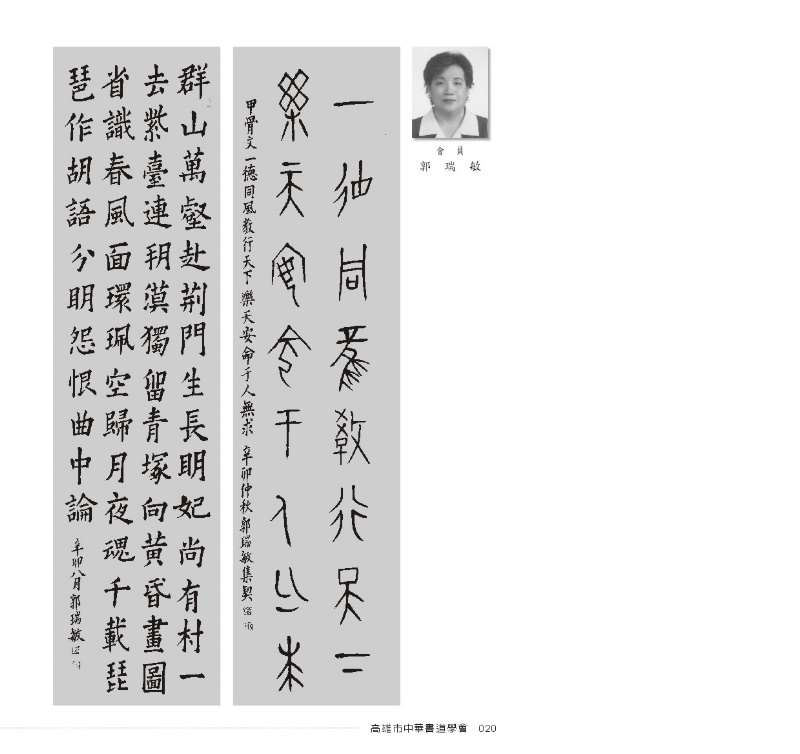 會 員
郭 瑞 敏
一德同風教行天下
樂天安命于人無求
甲骨文 一德同風教行天下 樂天安命于人無求 辛卯仲秋郭瑞敏集契
群山萬壑赴荊門生長明妃尚有村一
去紫臺連朔漠獨留青塚向黃昏畫圖
省識春風面環珮空歸月夜魂千載琵
琶作胡語分明怨恨曲中論 辛卯八月郭瑞敏
高雄市中華書道學會 020